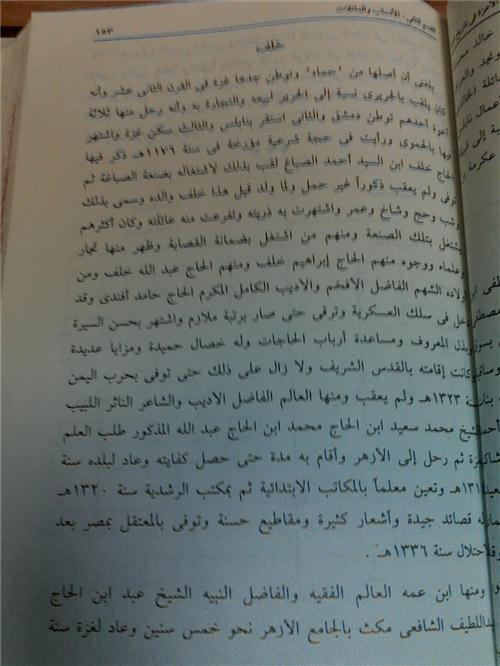 ١٥٣
القسم الثاني : الأنساب والعائلات
خلف
بلغني أن أصلها من "حماه" وتوطن جدها غزة في القرن الثاني عشر وأنه
كان يلقب بالحريري نسبة إلى الحرير لبيعه والتجارة به وأنه رحل منها ثلاثة
أخوة أحدهم توطن دمشق والثاني استقر بنابلس والثالث سكن غزة واشتهر
فيها بالحموي ورأيت في حجة شرعية مؤرخة في سنة ١١٧٩هـ ذكر فيها
الحاج خلف ابن السيد أحمد الصباغ لقب بذلك لاشتغاله بصنعة الصباغة ثم
توفى ولم يعقب ذكوراً غير حمل ولما ولد قيل هذا خلف والده وسمى بذلك
وشب وحج وشاخ وعمر واشتهرت به ذريته وتفرعت منه عائلته وكان أكثرهم
يشتغل بتلك الصنعة ومنهم من اشتغل بضمانة القصابة وظهر منها تجار
وعلماء ووجوه منهم الحاج إبراهيم خلف ومنهم الحاج عبد الله خلف ومن
أولاده الشهم الفاضل الأفخم والأديب الكامل المكرم الحاج حامد أفندى وقد
دخل في سلك العسكرية وترقى حتى صار برتبة ملازم واشتهر بحسن السيرة
وبذل المعروف ومساعدة أرباب الحاجات وله خصال حميدة ومزايا عديدة
وكانت إقامته بالقدس الشريف ولا زال على ذلك حتى توفى بحرب اليمن
سنة ١٣٢٣هـ ولم يعقب ومنها العالم الفاضل الأديب والشاعر الناثر اللبيب
الشيخ محمد سعيد ابن الحاج محمد ابن الحاج عبد الله المذكور طلب العلم
بغزة ثم رحل إلى الأزهر وأقام به مدة حتى حصل كفايته وعاد لبلده سنة
هـ وتعين معلماً بالمكاتب الابتدائية ثم بمكتب الرشدية سنة ١٣٢٠هـ
وله قصائد جيدة وأشعار كثيرة ومقاطيع حسنة وتوفى بالمعتقل بمصر بعد
الاحتلال سنة ١٣٣٦هـ .
ومنها ابن عمه العالم الفقيه والفاضل النبيه الشيخ عبد ابن الحاج
عبداللطيف الشافعى مكث بالجامع الأزهر نحو خمس سنين وعاد لغزة سنة